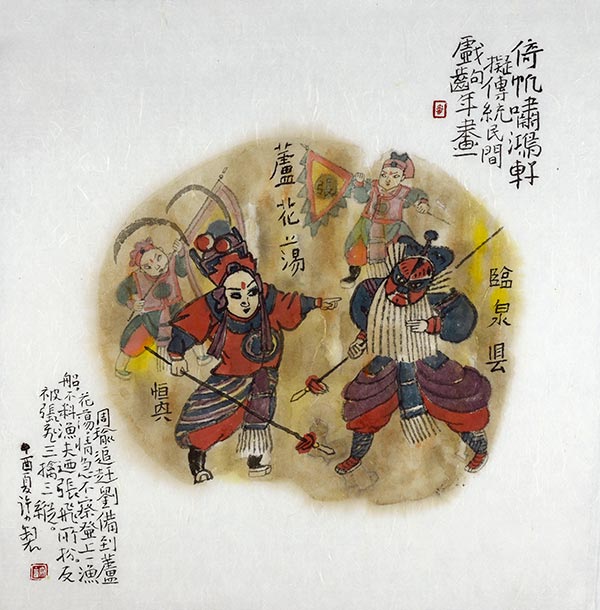 倚帆嘯鴻軒
擬傳統民間
戲齣年畫一
蘆花蕩
臨泉县
周瑜追赶劉備到蘆
花蕩情急不察登上一漁
船不料漁夫廼張飛所扮反
被張飛三擒三縱。
酉夏 製